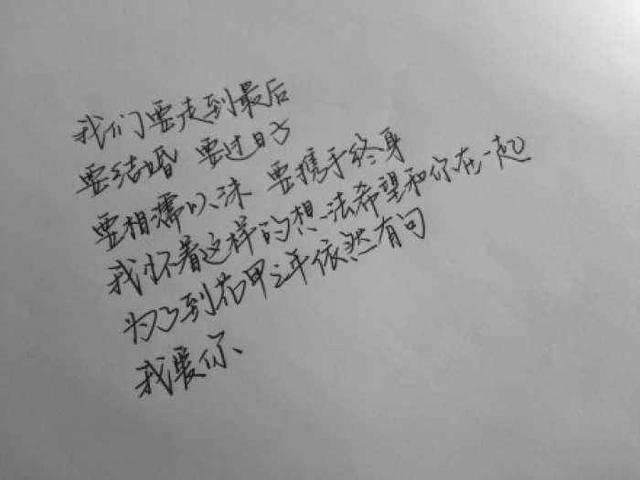 我们要走到最后
要结婚 要过日子
要相濡以沫 要携手终身
我怀着这样的想法希望和你在一起
为了到花甲之年依然有句
我爱你、